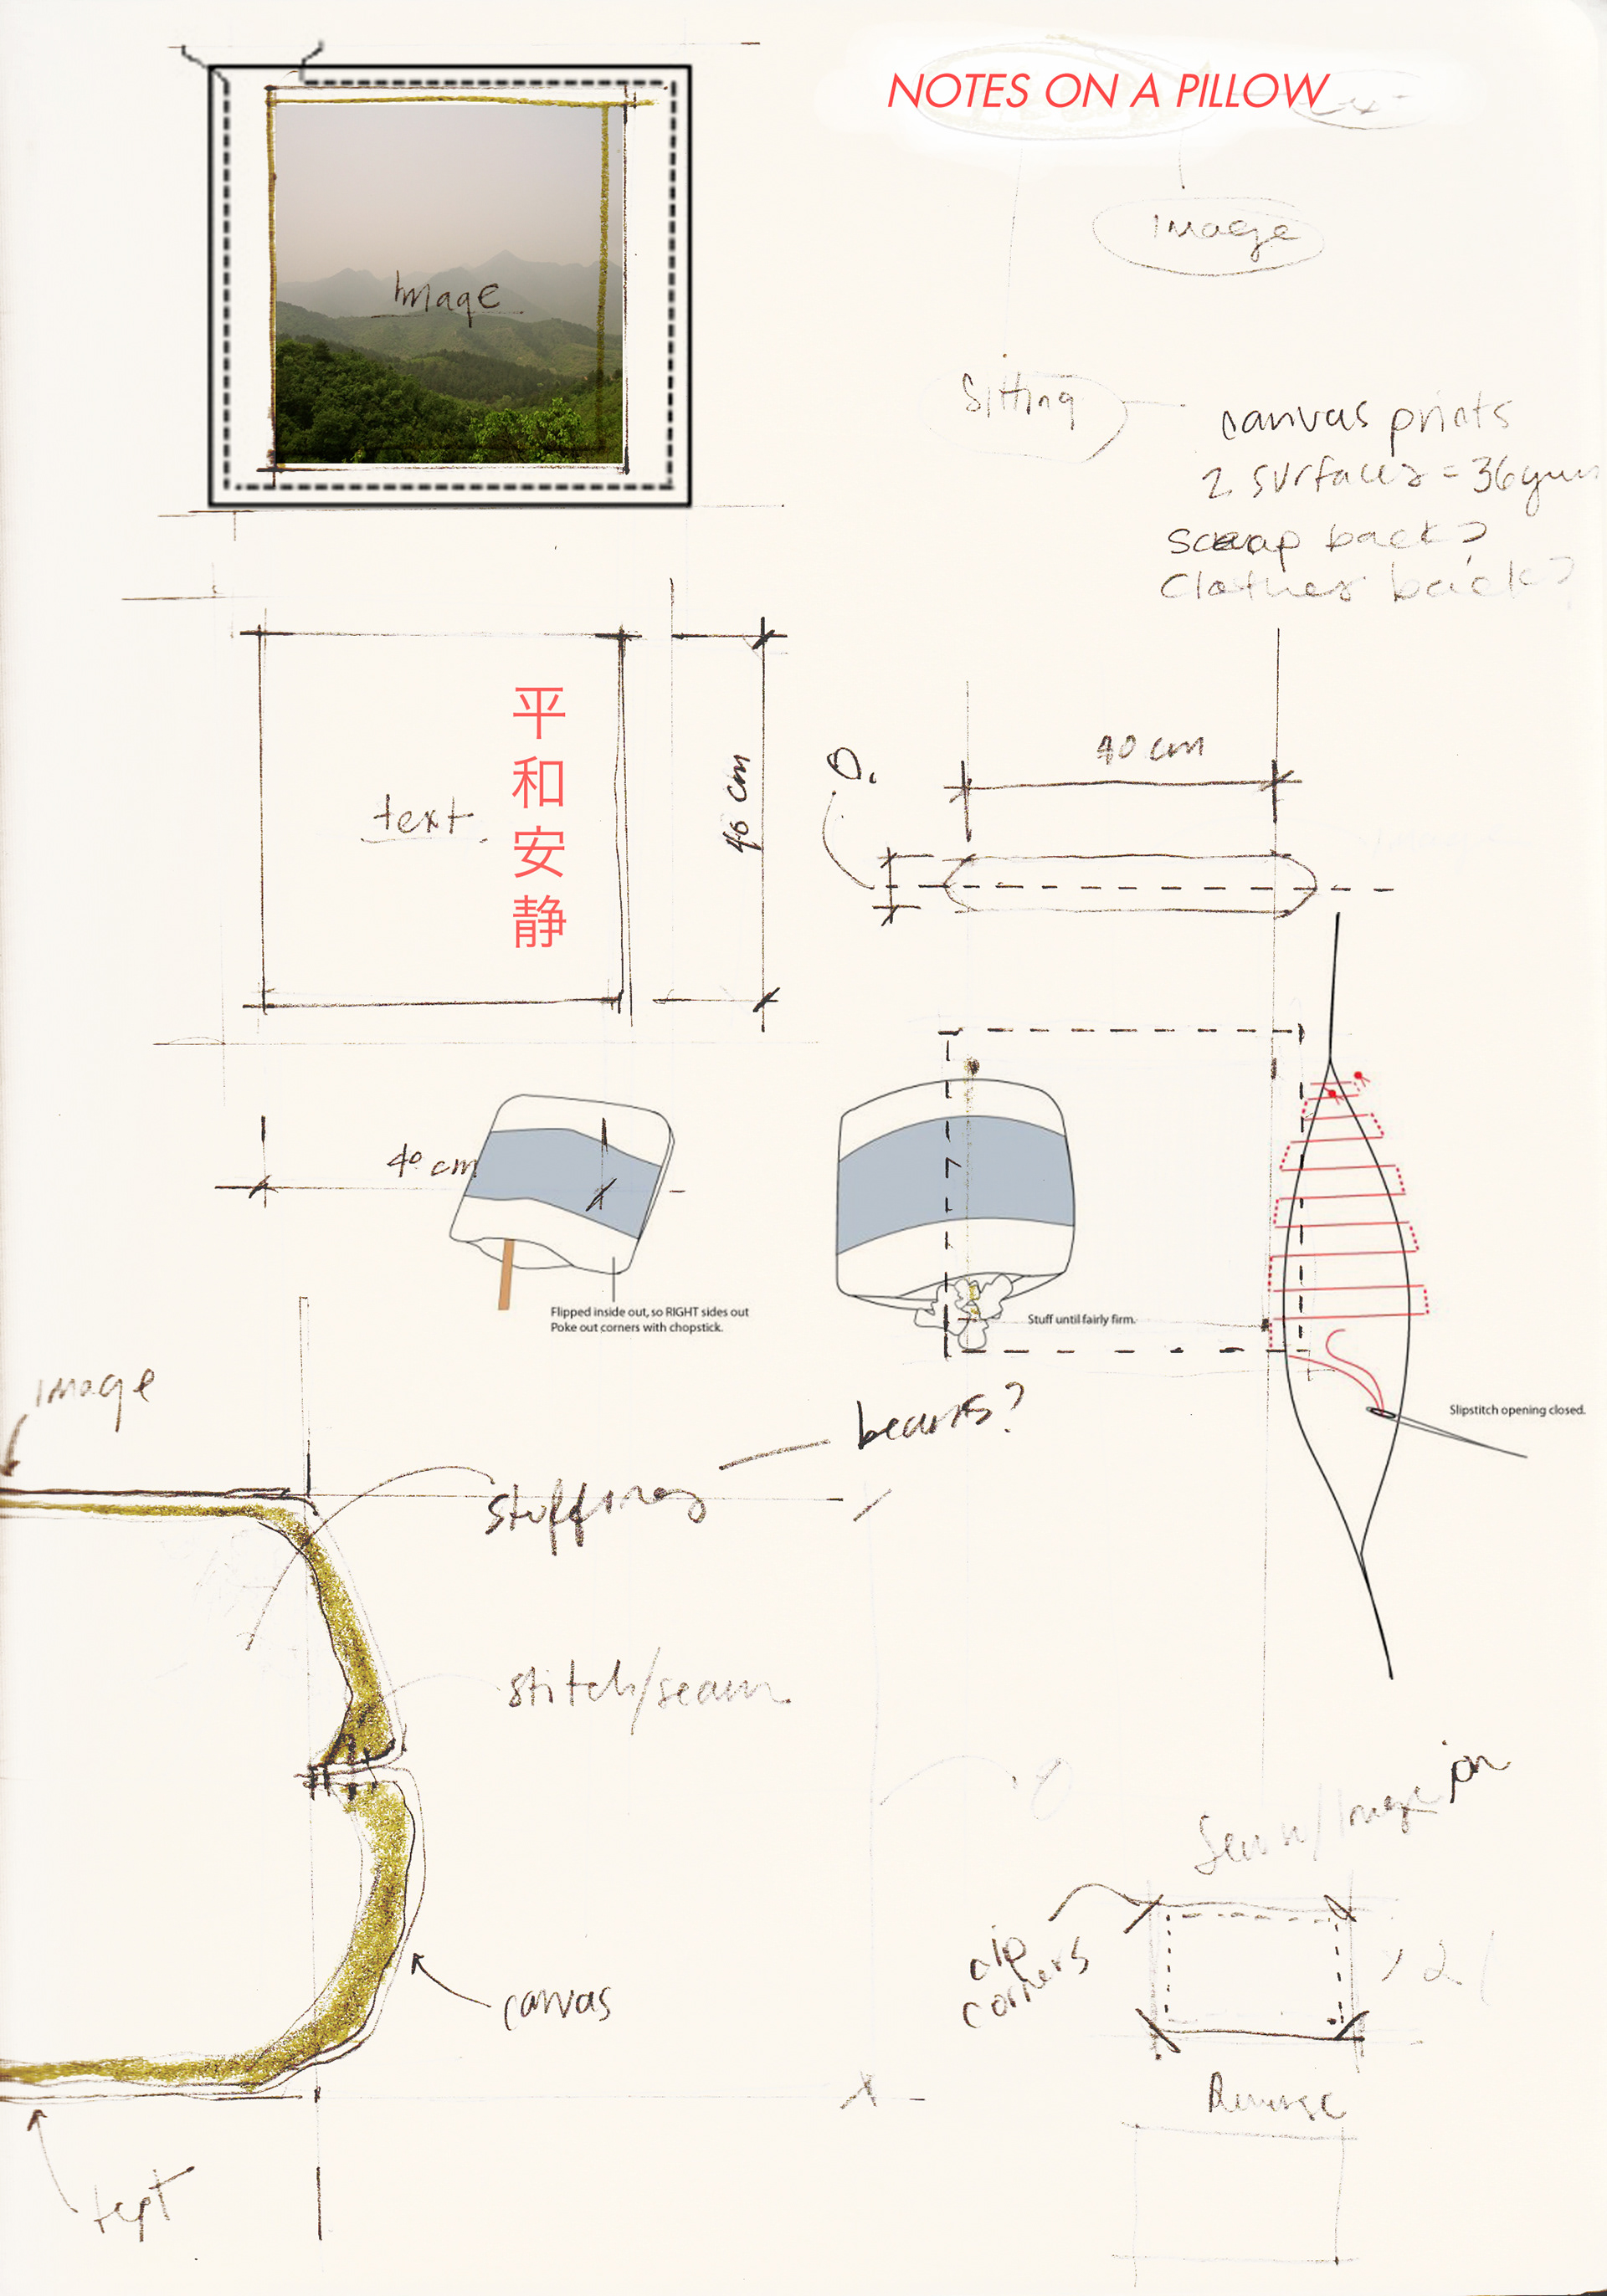 NOTES ON A PILLOW
Image
Image
Sitting
canvas prints
2 surfaces = 36yuan
scrap back?
Clothes back?
平
和
安
静
text.
40 cm
40 cm
40 cm
Flipped inside out, so RIGHT sides out
Poke out corners with chopstick.
Stuff until fairly firm.
Slipstitch opening closed.
image
beans?
stuffing
stitch/seam
canvas
clip
corners
Reverse
text